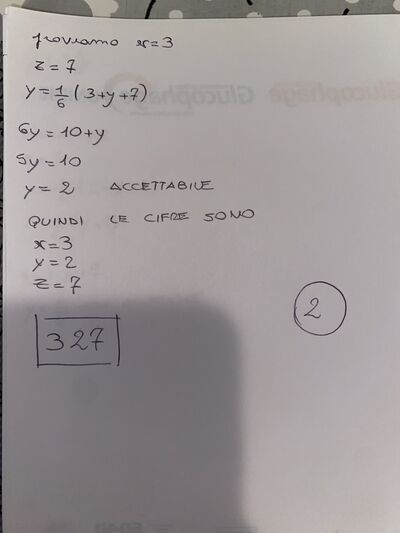 proviamo x=3
z=7
y=1/6(3+y+7)
6y=10+y
5y=10
y=2 ACCETTABILE
QUINDI LE CIFRE SONO
x=3
y=2
z=7
327
2